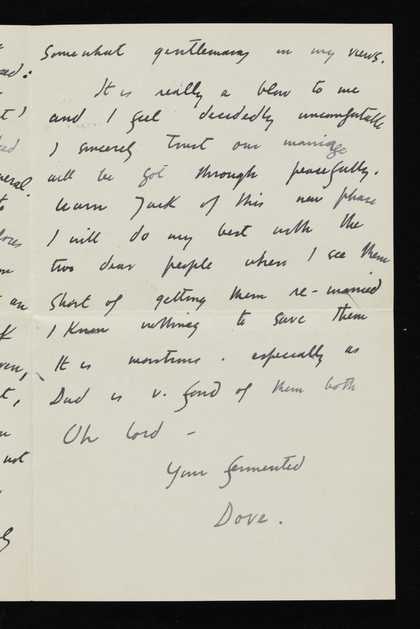 Somewhat gentlemanly in my views.
It is really a blow to me
and I feel decidedly uncomfortable
I sincerely trust our marriage
will be got through peacefully.
Warn Jack of this new phase
I will do my best with the
two dear people when I see them
short of getting them re-married
I know nothing to save them
It is monstrous. especially as
Dad is v. fond of them both
Oh Lord –
Your fermented
Dove.
ed:
t'
ed
eral.
to
loves
an
f
ven,
t,
not
ly